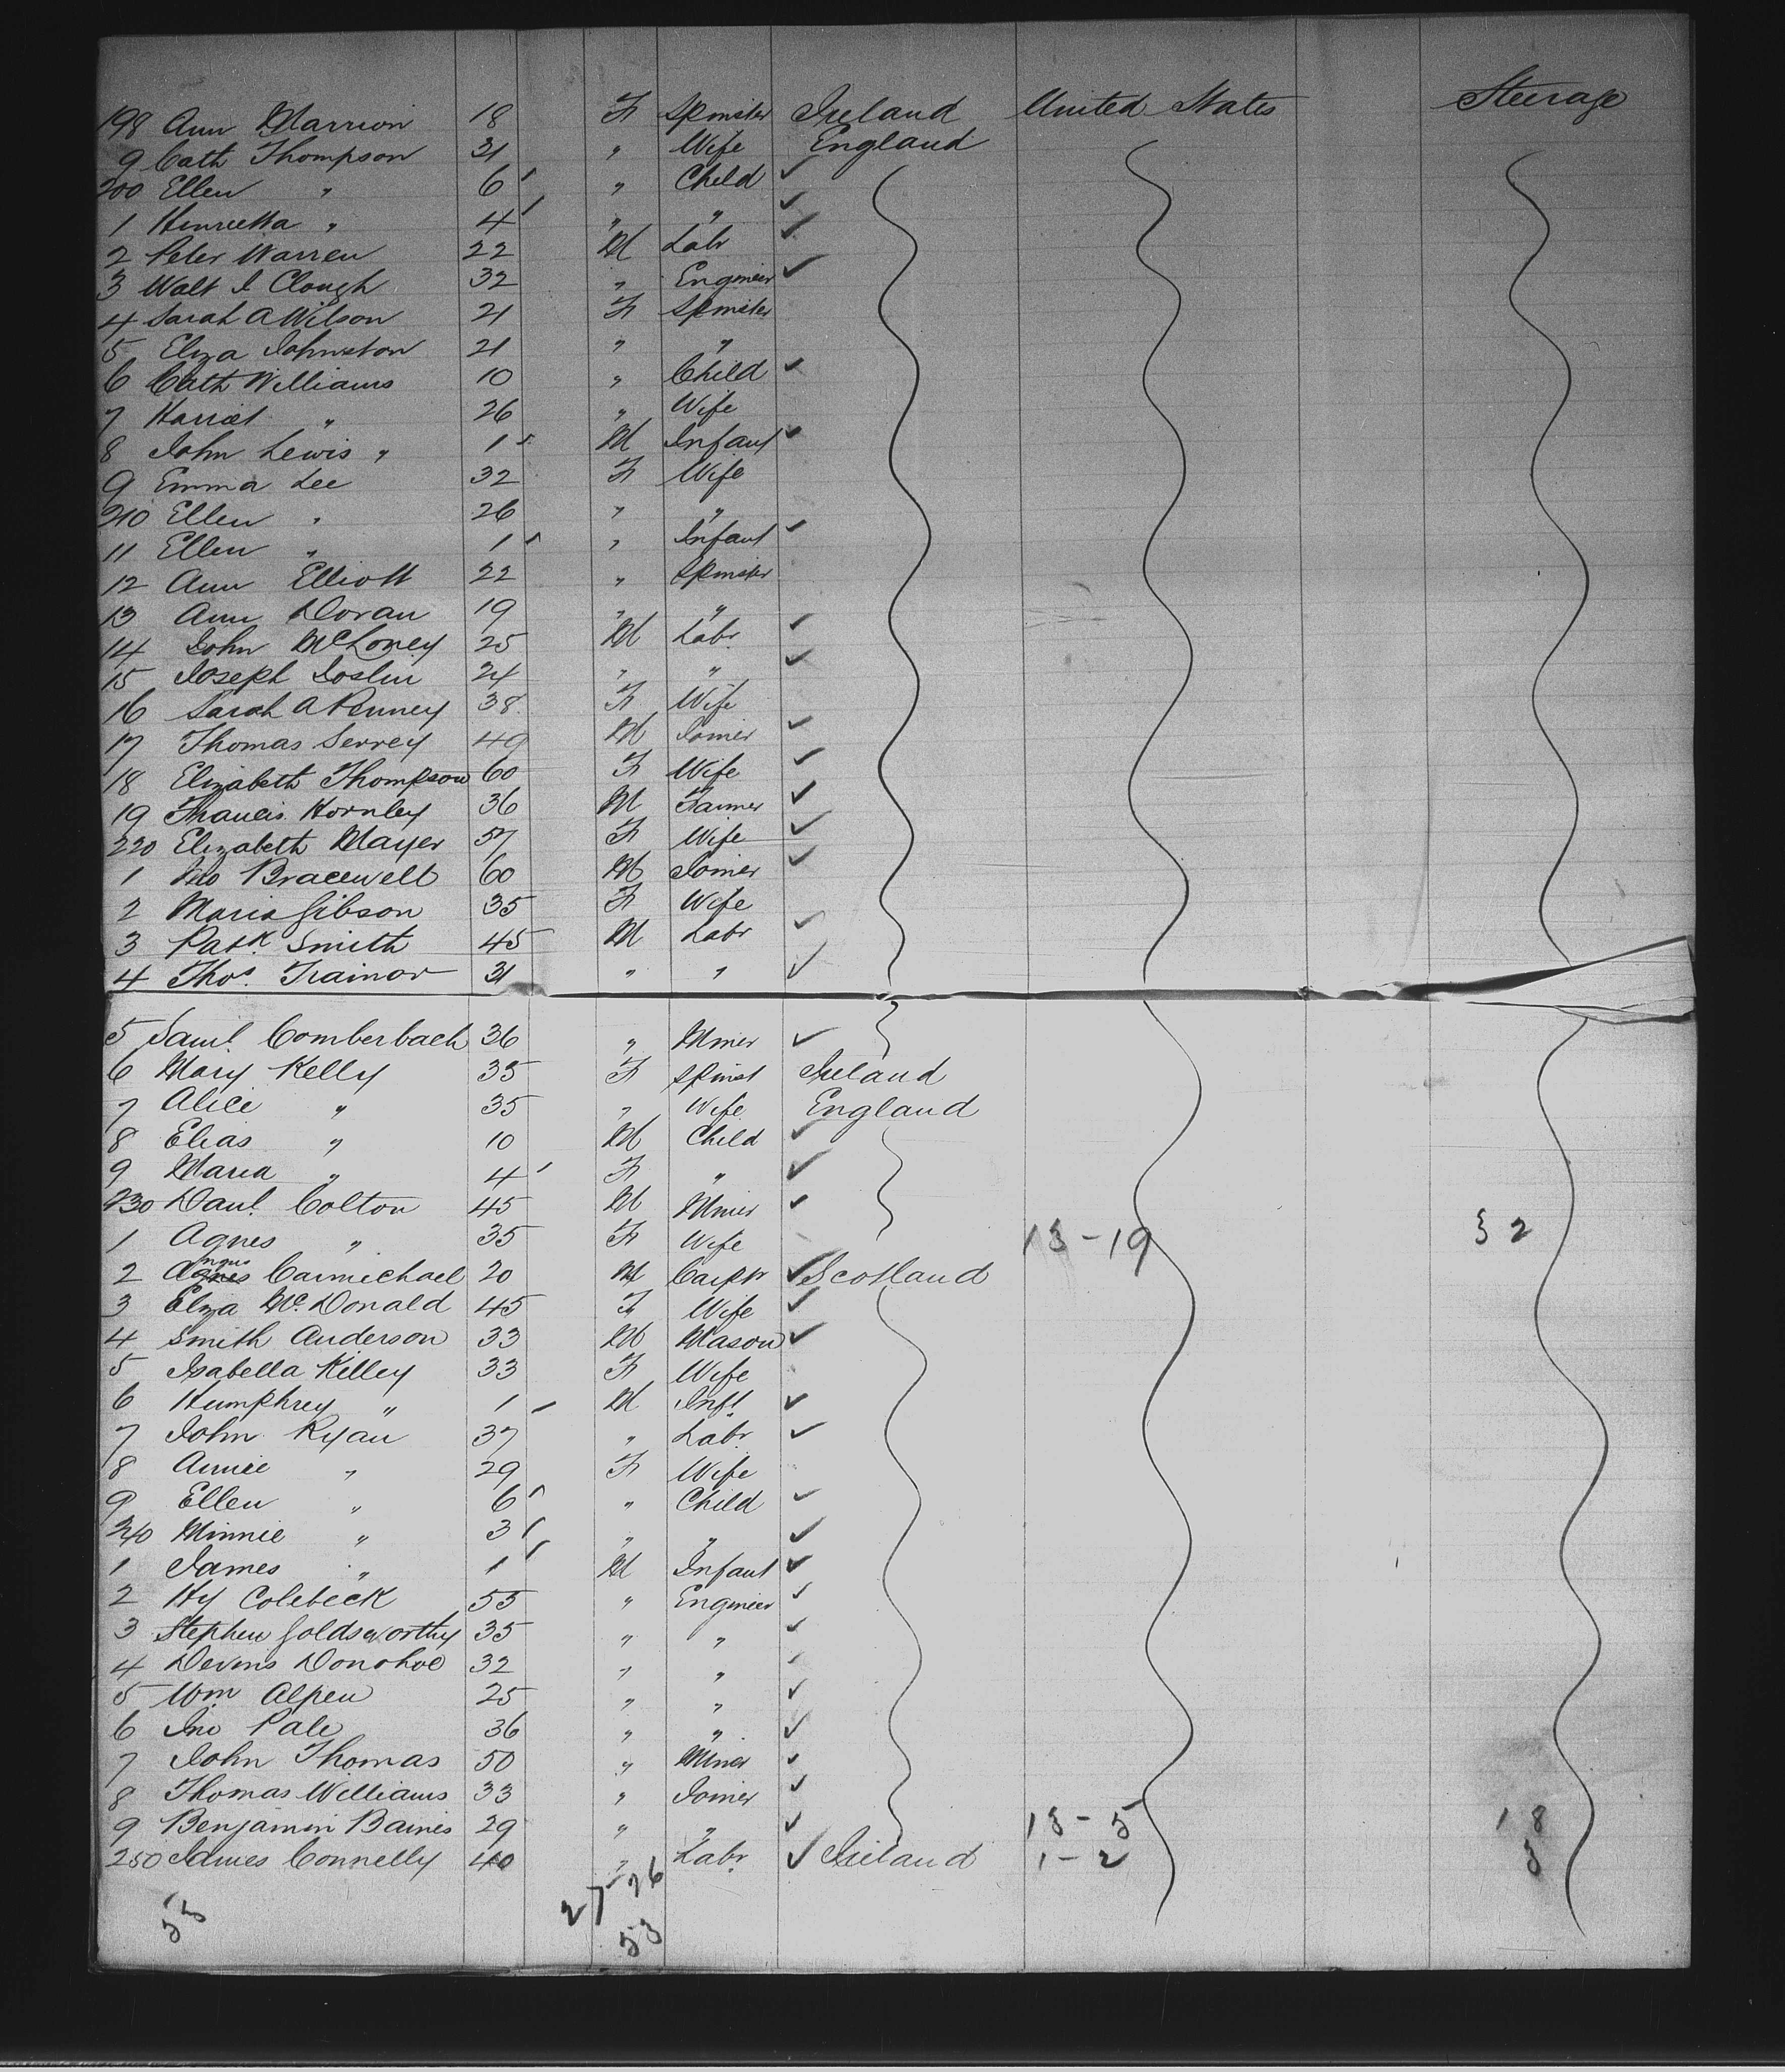 198 Ann Marrion 18 F Spinster Ireland United States Steerage
9 Cath Thompson 31 " Wife England
200 Ellen " 6 " Child ✓
1 Henrietta " 4 " " ✓
2 Peter Warren 22 M Labr ✓
3 Walt I Clough 32 " Engineer ✓
4 Sarah A Wilson 21 F Spinster
5 Eliza Johnston 21 " "
6 Cath Williams 10 " Child ✓
7 Harriet " 26 " Wife
8 John Lewis " 1 M Infant ✓
9 Emma Lee 32 F Wife
210 Ellen " 26 " "
11 Ellen " 1 " Infant ✓
12 Ann Elliott 22 " Spinster
13 Ann Doran 19 " "
14 John McLoney 25 M Labr ✓
15 Joseph Joslin 24 " " ✓
16 Sarah A Penney 38 F Wife
17 Thomas Serrey 49 M Joiner ✓
18 Elizabeth Thompson 60 F Wife ✓
19 Francis Hornley 36 M Farmer ✓
220 Elizabeth Mayer 57 F Wife ✓
1 Bracewell 60 M Joiner ✓
2 Maria Gibson 35 F Wife
3 Patk Smith 45 M Labr ✓
4 Thos. Trainor 31 " " ✓
5 Saml Comberbach 36 " Miner ✓
6 Mary Kelly 35 F Spinst Ireland
7 Alice " 35 " Wife England
8 Elias " 10 M Child ✓
9 Maria " 4 F " ✓
230 Danl. Colton 45 M Miner ✓
1 Agnes " 35 F Wife 13-19 32
2 Angus Carmichael 20 M Carptr ✓ Scotland
3 Eliza McDonald 45 F Wife ✓
4 Smith Anderson 33 M Mason ✓
5 Isabella Killey 33 F Wife
6 Humphrey " 1 M Inft ✓
7 John Ryan 37 " Labr ✓
8 Annie " 29 F Wife
9 Ellen " 6 " Child ✓
240 Minnie " 3 " " ✓
1 James " 1 M Infant ✓
2 Hy Colebeck 55 " Engineer ✓
3 Stephen Goldsworthy 35 " " ✓
4 Devins Donohoe 32 " " ✓
5 Wm Alpen 25 " " ✓
6 Jno Pale 36 " " ✓
7 John Thomas 50 " Miner ✓
8 Thomas Williams 33 " Joiner ✓
9 Benjamin Baines 29 " " ✓ 13-5 18
250 James Connelly 40 " Labr ✓ Ireland 1-2 3
53 27-26
53